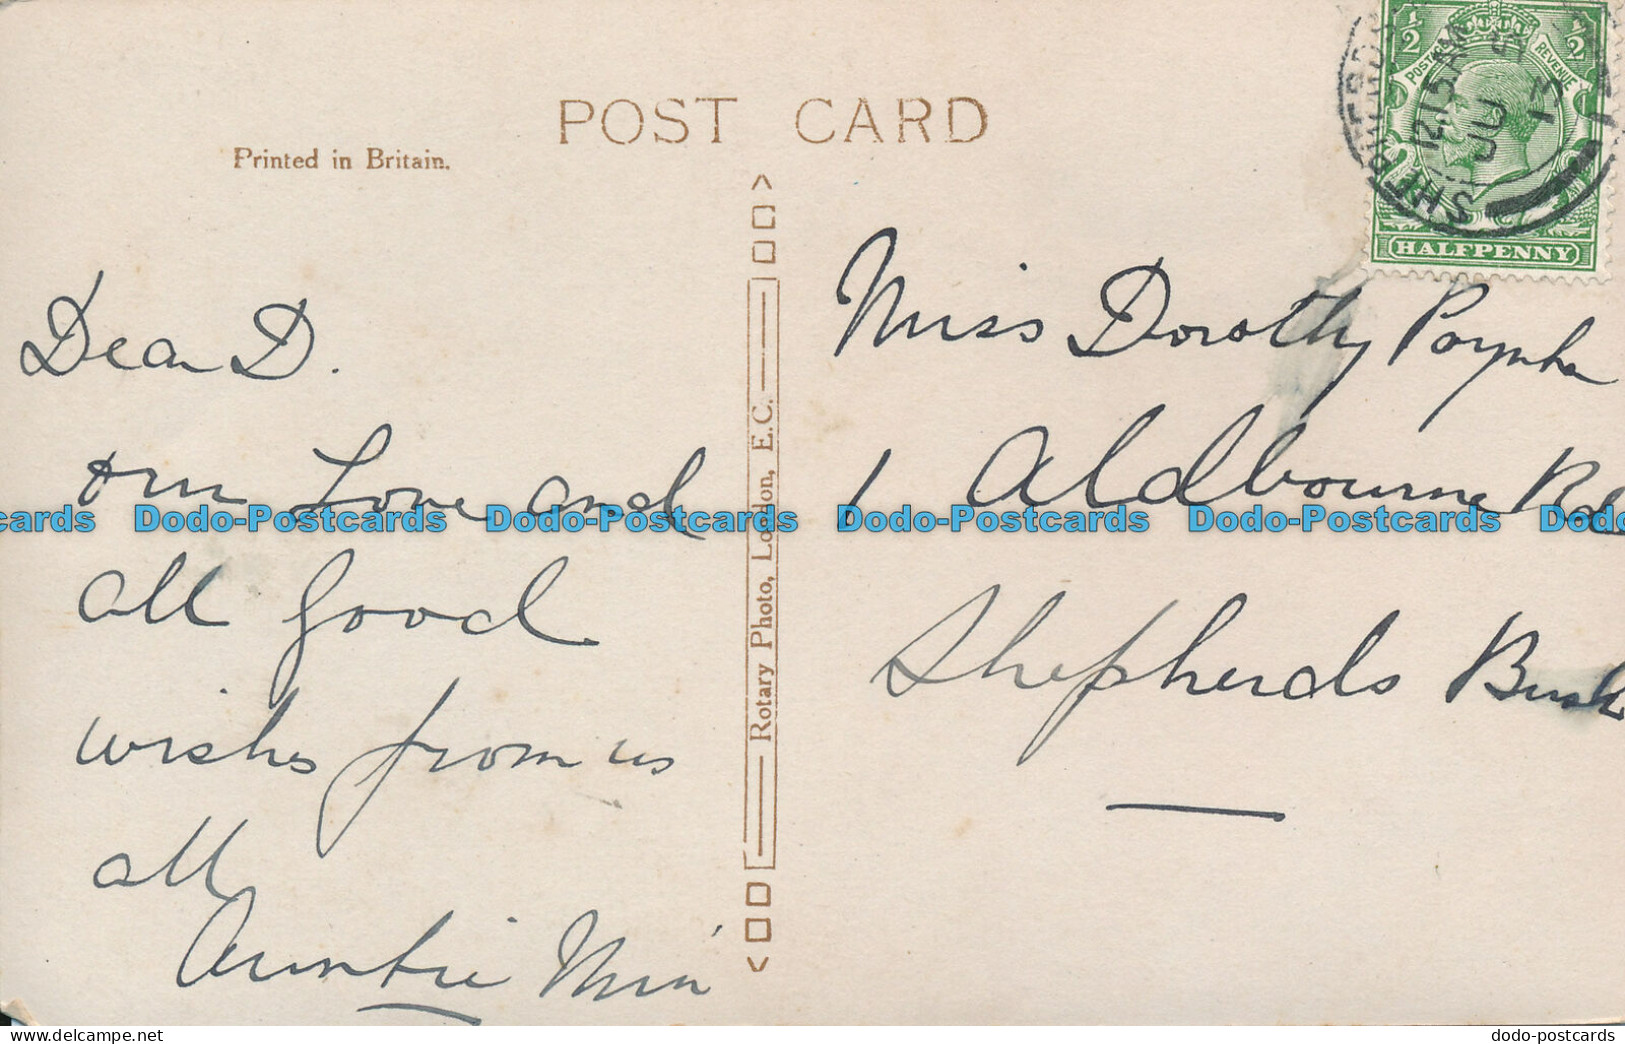 POST CARD
Printed in Britain.
Dear D.
Love and
all good
wishes from us
all
Auntie Min
Rotary Photo, London, E.C.
Miss Dorothy
1 Aldbourne Rd
Shepherds Bush
½ ½
POSTAGE REVENUE
HALFPENNY
12.15 AM
JU
13
Dodo-Postcards Dodo-Postcards Dodo-Postcards Dodo-Postcards
dodo-postcards